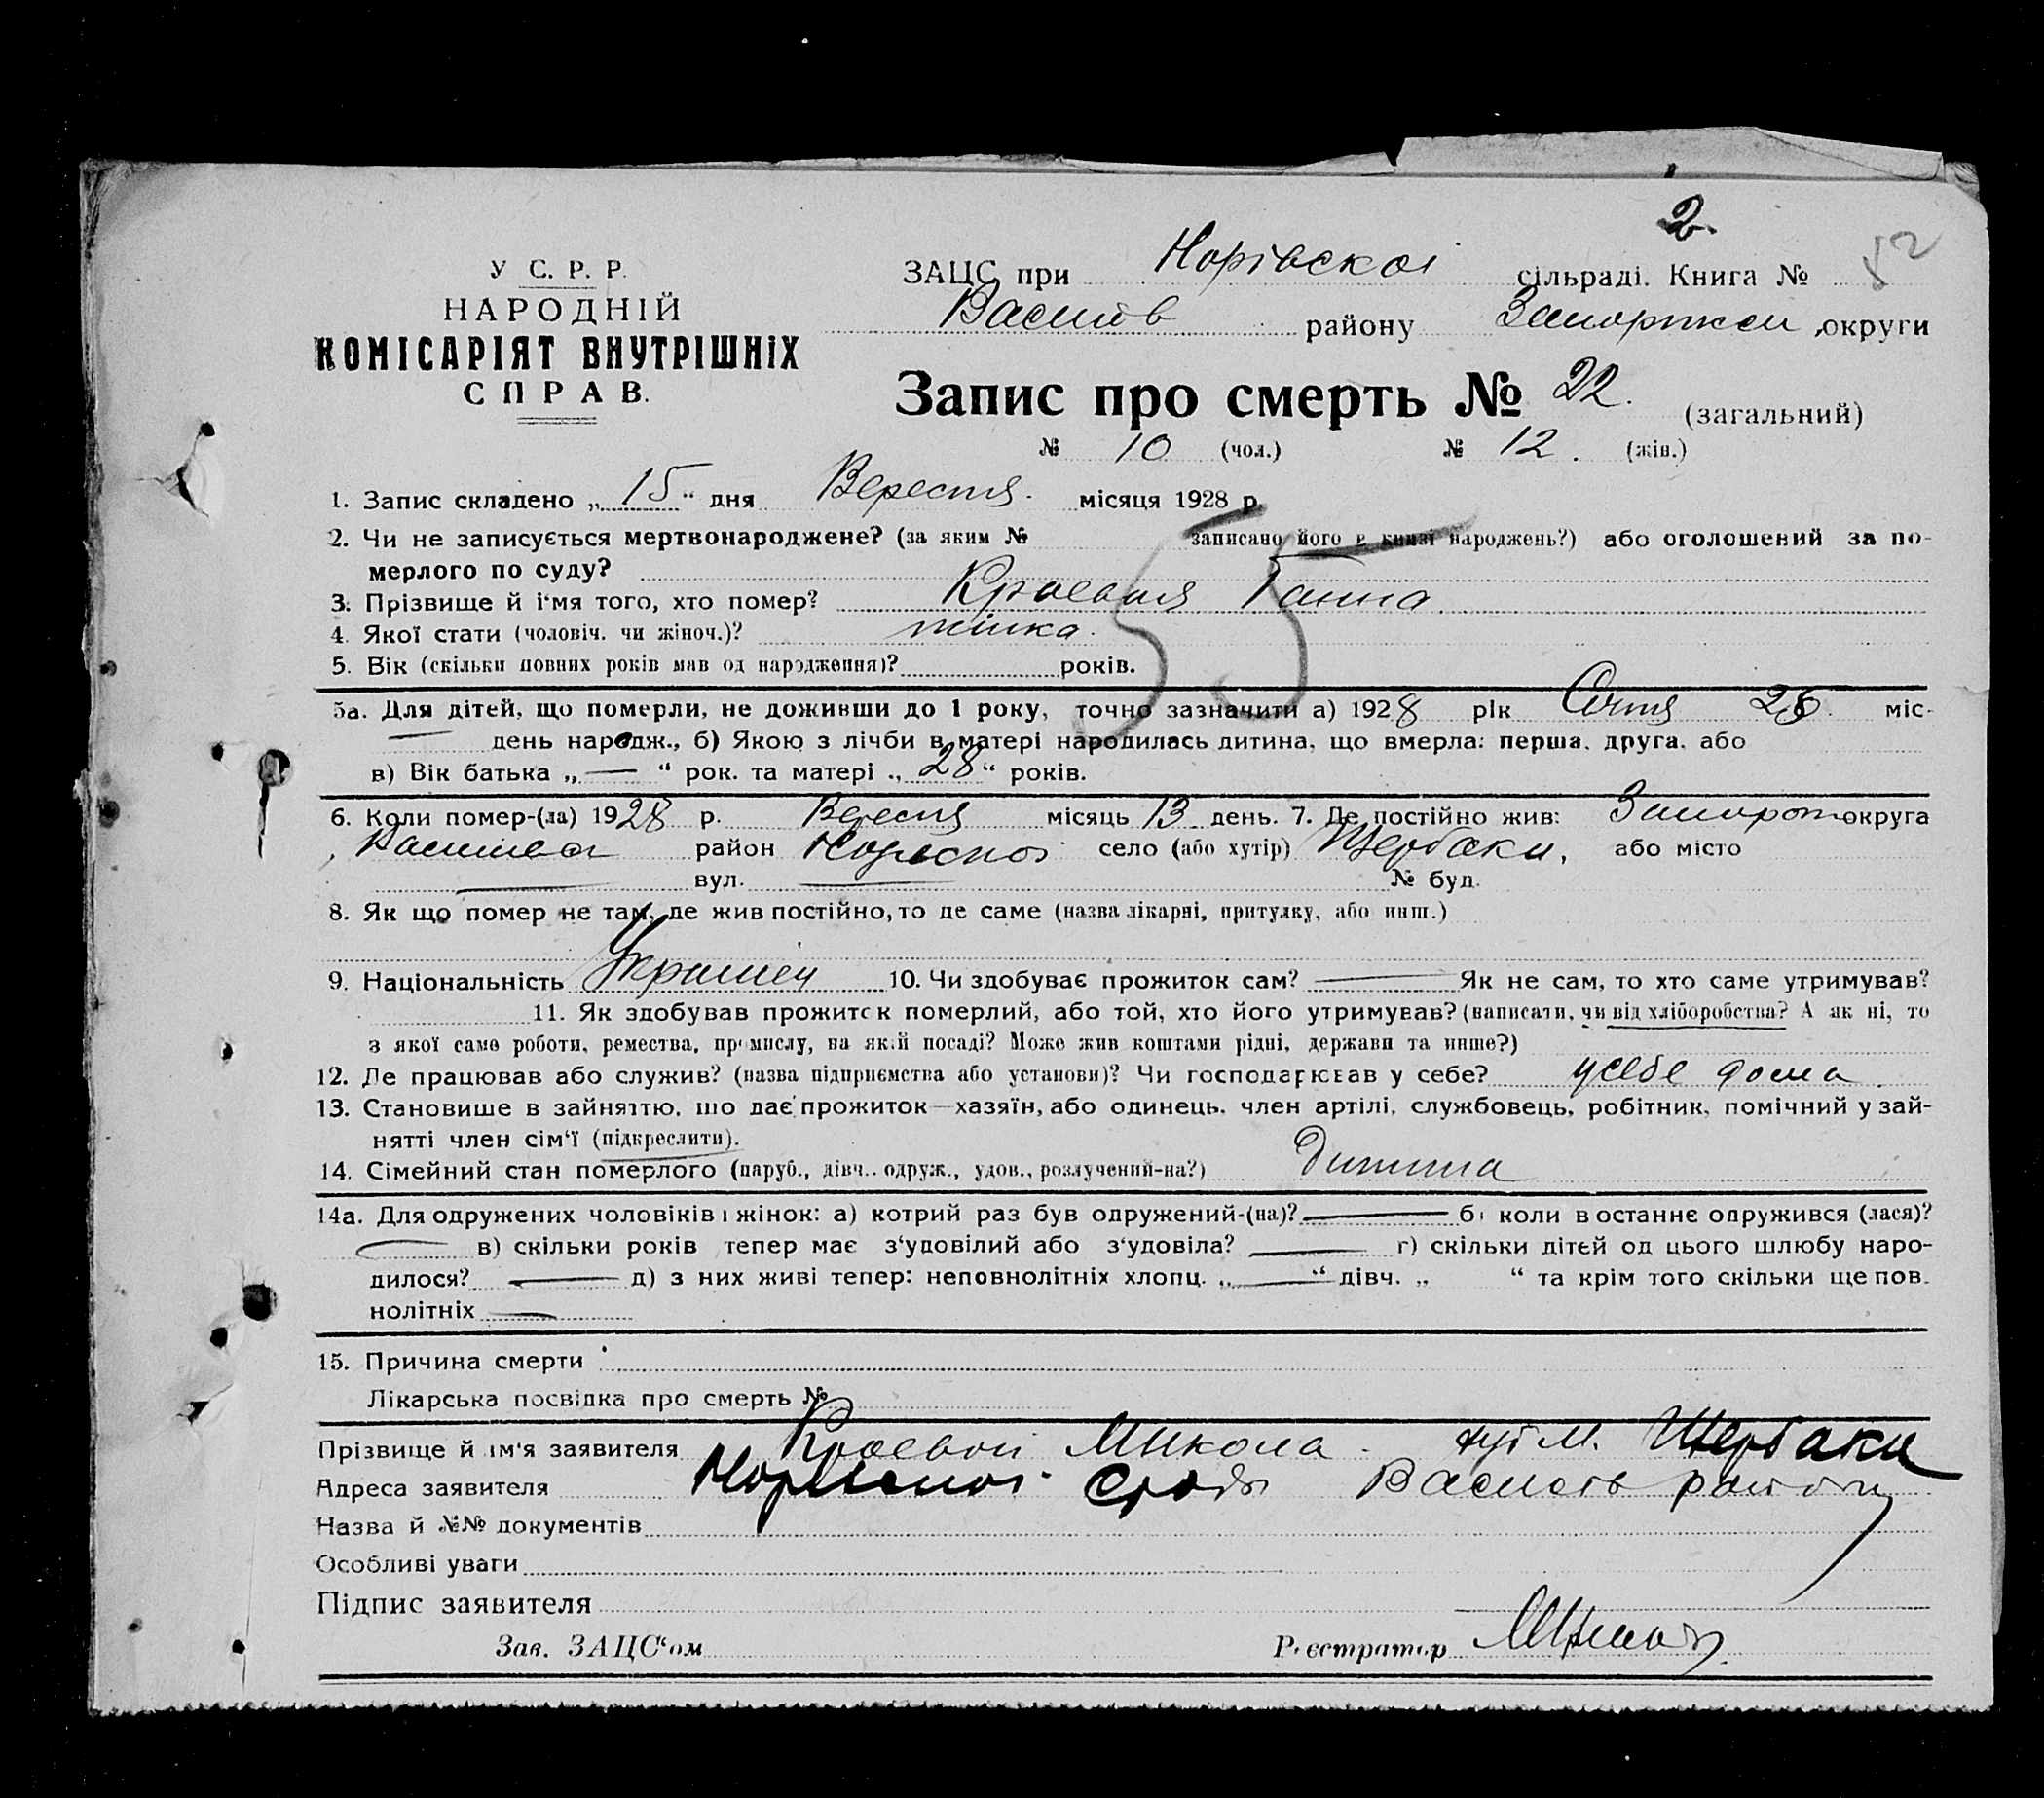 2.
52
У С. Р. Р.
НАРОДНІЙ
КОМІСАРІЯТ ВНУТРІШНІХ
СПРАВ.
ЗАЦС при Норівскої сільраді. Книга №
Василів району Запоріжси округи
Запис про смерть № 22. (загальний)
№ 10 (чол.) № 12. (жін.)
1. Запис складено „15“ дня Вересня. місяця 1928 р.
2. Чи не записується мертвонароджене? (за яким № записано його в книзі народжень?) або оголошений за по-
мерлого по суду?
55
3. Прізвище й і'мя того, хто помер? Краевая Ганна
4. Якої стати (чоловіч. чи жіноч.)? жінка.
5. Вік (скільки повних років мав од народження)? років.
5а. Для дітей, що померли, не доживши до 1 року, точно зазначити а) 1928 рік Січня 26. міс-
— день народж., б) Якою з лічби в матері народилась дитина, що вмерла: перша, друга, або
в) Вік батька „—“ рок. та матері „28“ років.
6. Коли помер-(ла) 1928 р. Вересня місяць 13 день. 7. Де постійно жив: Запорож округа
район село (або хутір) Щербаки, або місто
— вул. — № буд.
8. Як що помер не там, де жив постійно, то де саме (назва лікарні, притулку, або инш.)
9. Національність Украінец 10. Чи здобуває прожиток сам? — Як не сам, то хто саме утримував?
11. Як здобував прожиток померлий, або той, хто його утримував? (написати, чи від хліборобства? А як ні, то
з якої саме роботи, ремества, промислу, на якій посаді? Може жив коштами рідні, держави та инше?)
12. Де працював або служив? (назва підприємства або установи)? Чи господарював у себе? у себе дома.
13. Становище в зайняттю, що дає прожиток—хазяїн, або одинець, член артілі, службовець, робітник, помічний у зай-
нятті член сім'ї (підкреслити).
14. Сімейний стан померлого (паруб., дівч., одруж., удов., розлучений-на?) Дитина
14а. Для одружених чоловіків і жінок: а) котрий раз був одружений-(на)? — б) коли в останнє одружився (лася)?
— в) скільки років тепер має з'удовілий або з'удовіла? — г) скільки дітей од цього шлюбу наро-
дилося? — д) з них живі тепер: неповнолітніх хлопц. „—“ дівч. „ “ та крім того скільки ще пов.
нолітніх —
15. Причина смерти
Лікарська посвідка про смерть №
Прізвище й ім'я заявителя Краевой Микола. хут М. Щербаки
Адреса заявителя району
Назва й №№ документів
Особливі уваги
Підпис заявителя
Зав. ЗАЦС'ом Реєстратор